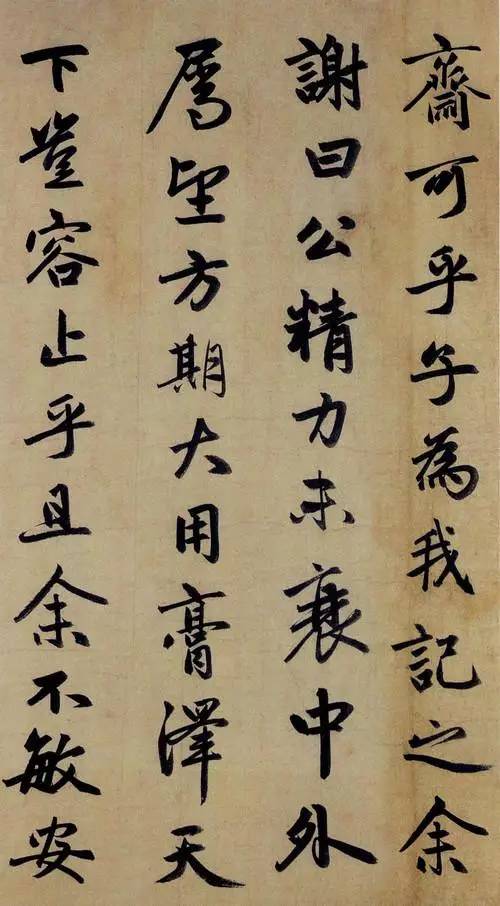 齋可乎子為我記之余
謝曰公精力未衰中外
属望方期大用膏澤天
下豈容止乎且余不敏安